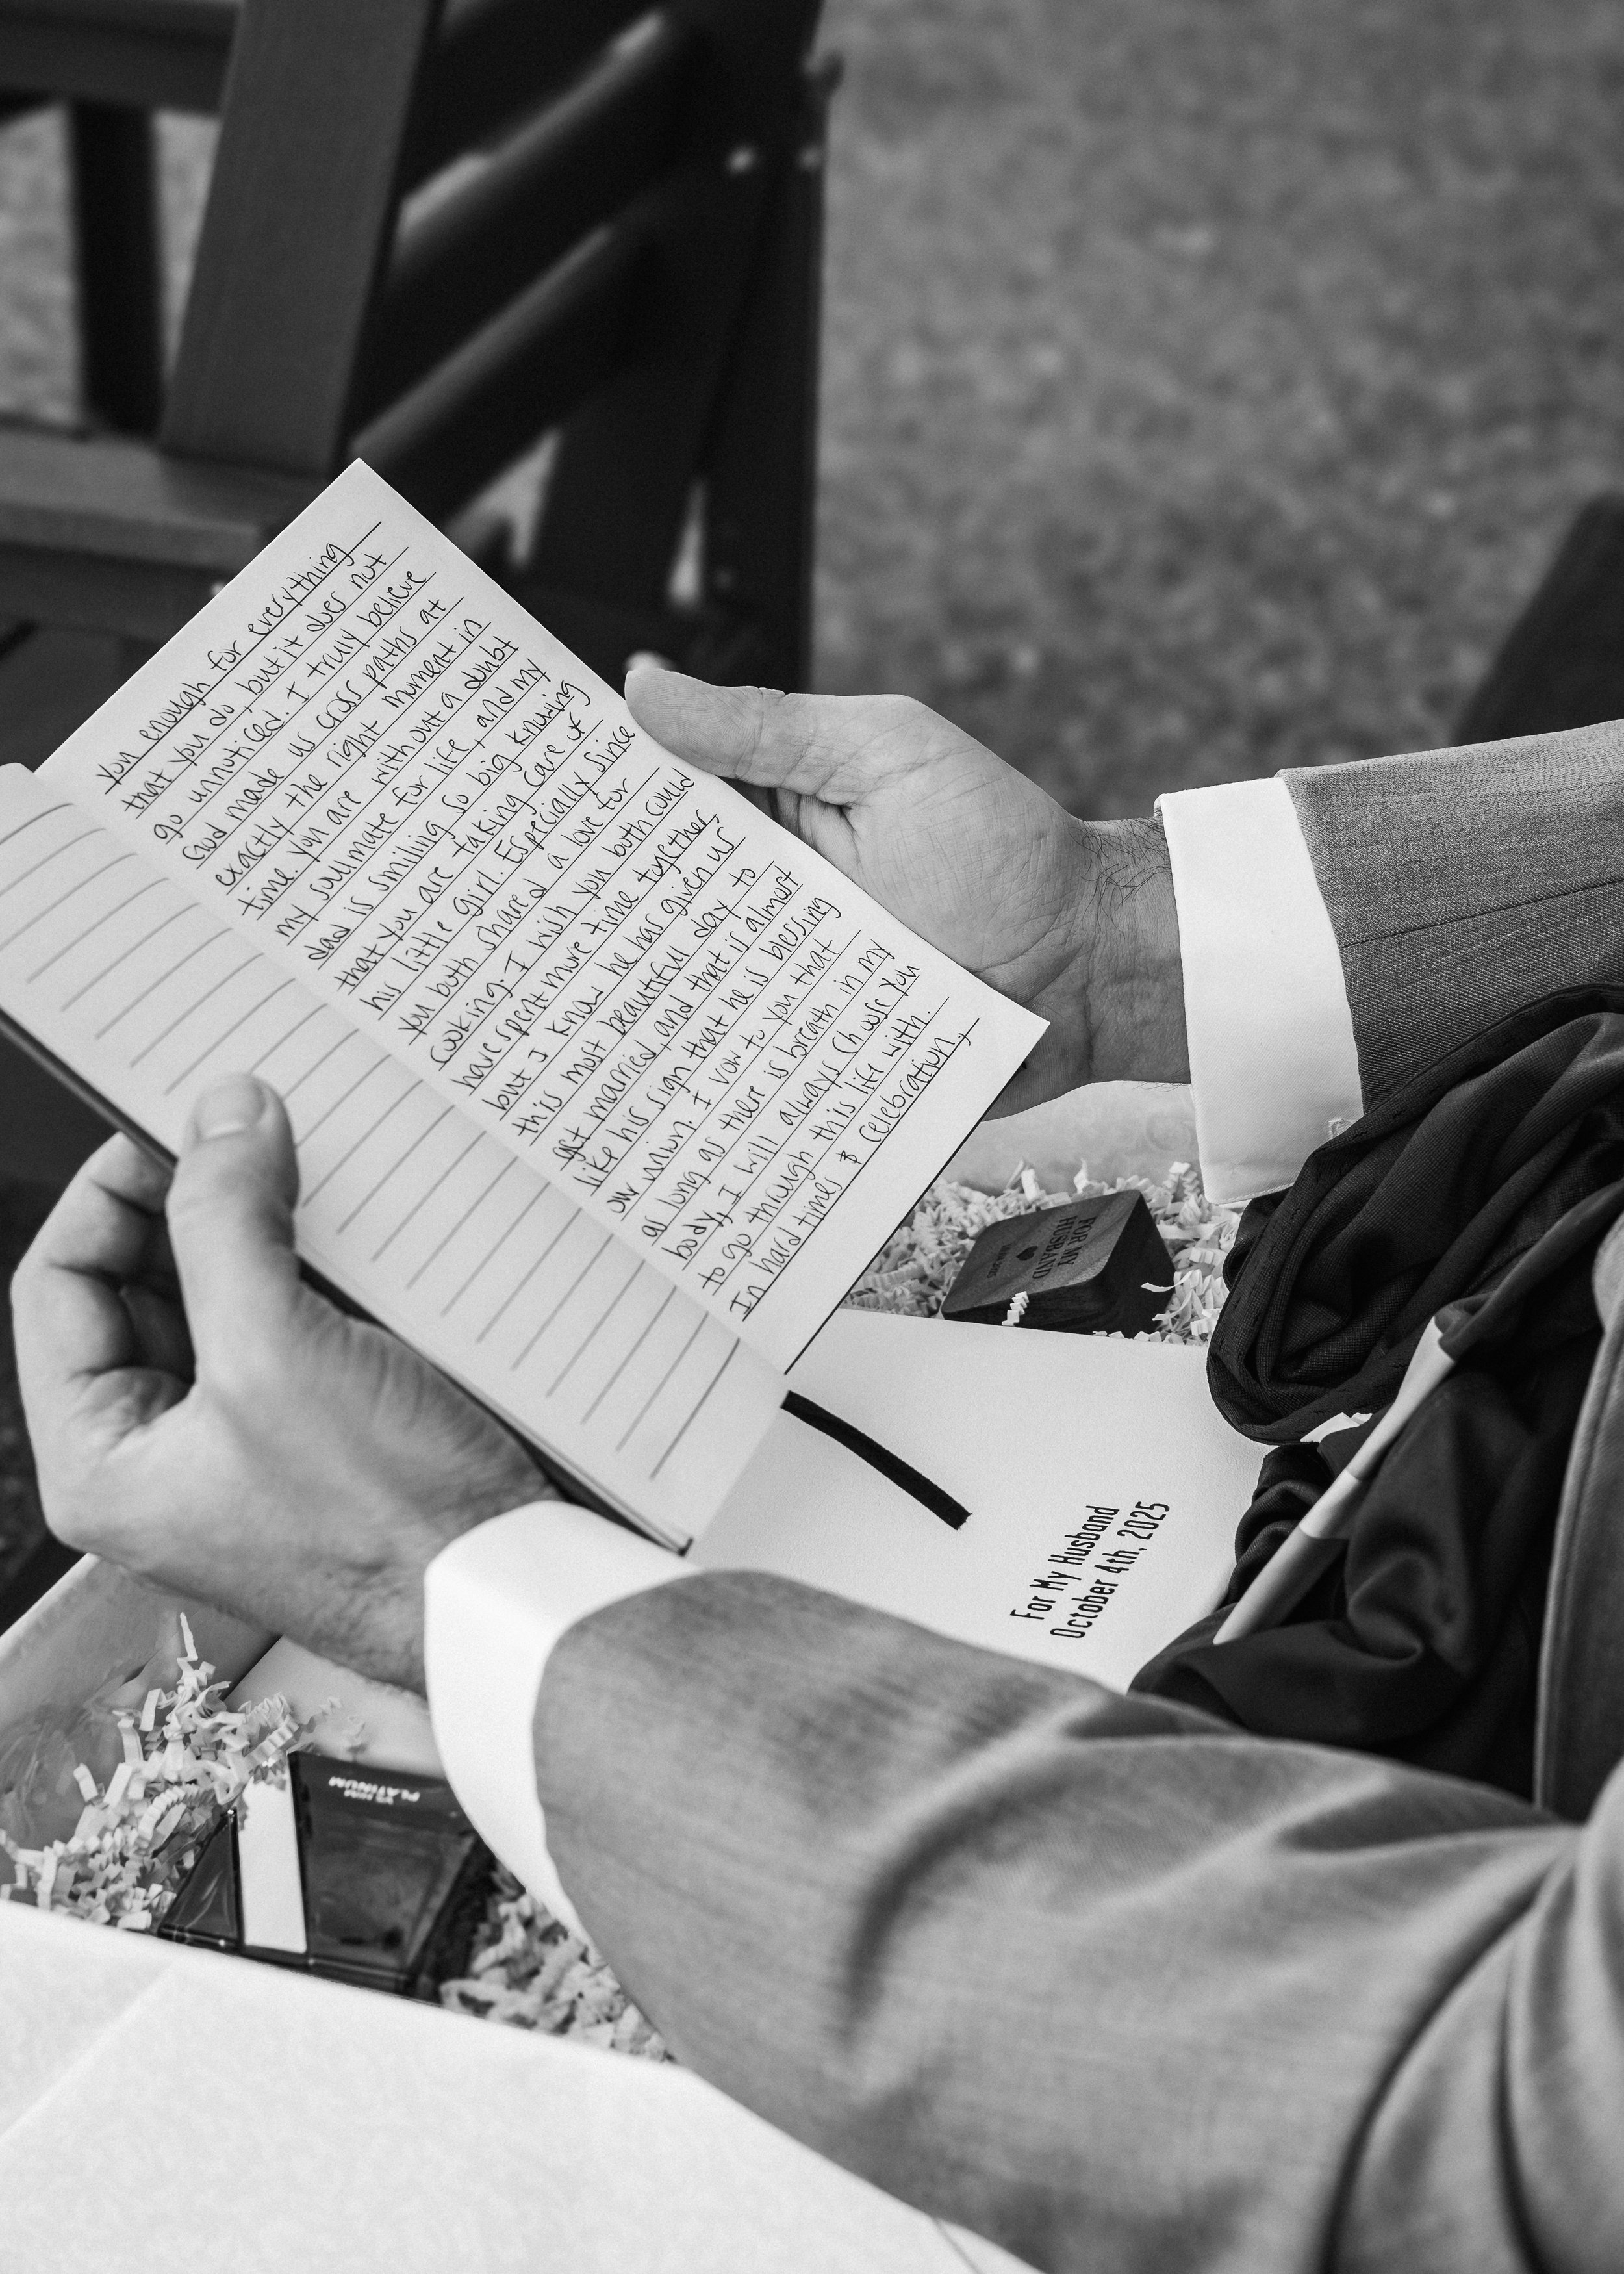 you enough for everything
that you do, but it does not
go unnoticed. I truly believe
God made us cross paths at
exactly the right moment in
time. You are with out a doubt
my soulmate for life, and my
dad is smiling so big knowing
that you are taking care of
his little girl. Especially since
you both share a love for
cooking. I wish you both could
have spent more time together,
but I know he has given us
this most beautiful day to
get married, and that is almost
like his sign that he is blessing
our union. I vow to you that
as long as there is breath in my
body, I will always choose you
to go through this life with.
In hard times & celebration,
FOR MY
HUSBAND
For My Husband
October 4th, 2025
PLATINUM